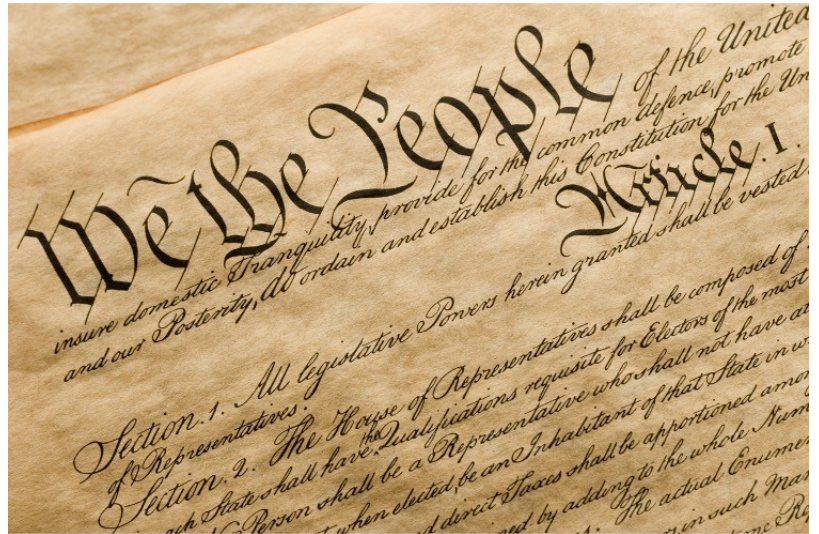 We the People of the United
insure domestic Tranquility, provide for the common defence, promote
and our Posterity, do ordain and establish this Constitution for the Un
Article. I.
Section. 1. All legislative Powers herein granted shall be vested
of Representatives.
Section. 2. The House of Representatives shall be composed of
ach State shall have the Qualifications requisite for Electors of the most
No Person shall be a Representative who shall not have at
when elected, be an Inhabitant of that State in w
d direct Taxes shall be apportioned amon
ned by adding to the whole Num
The actual Enumer
in such Man